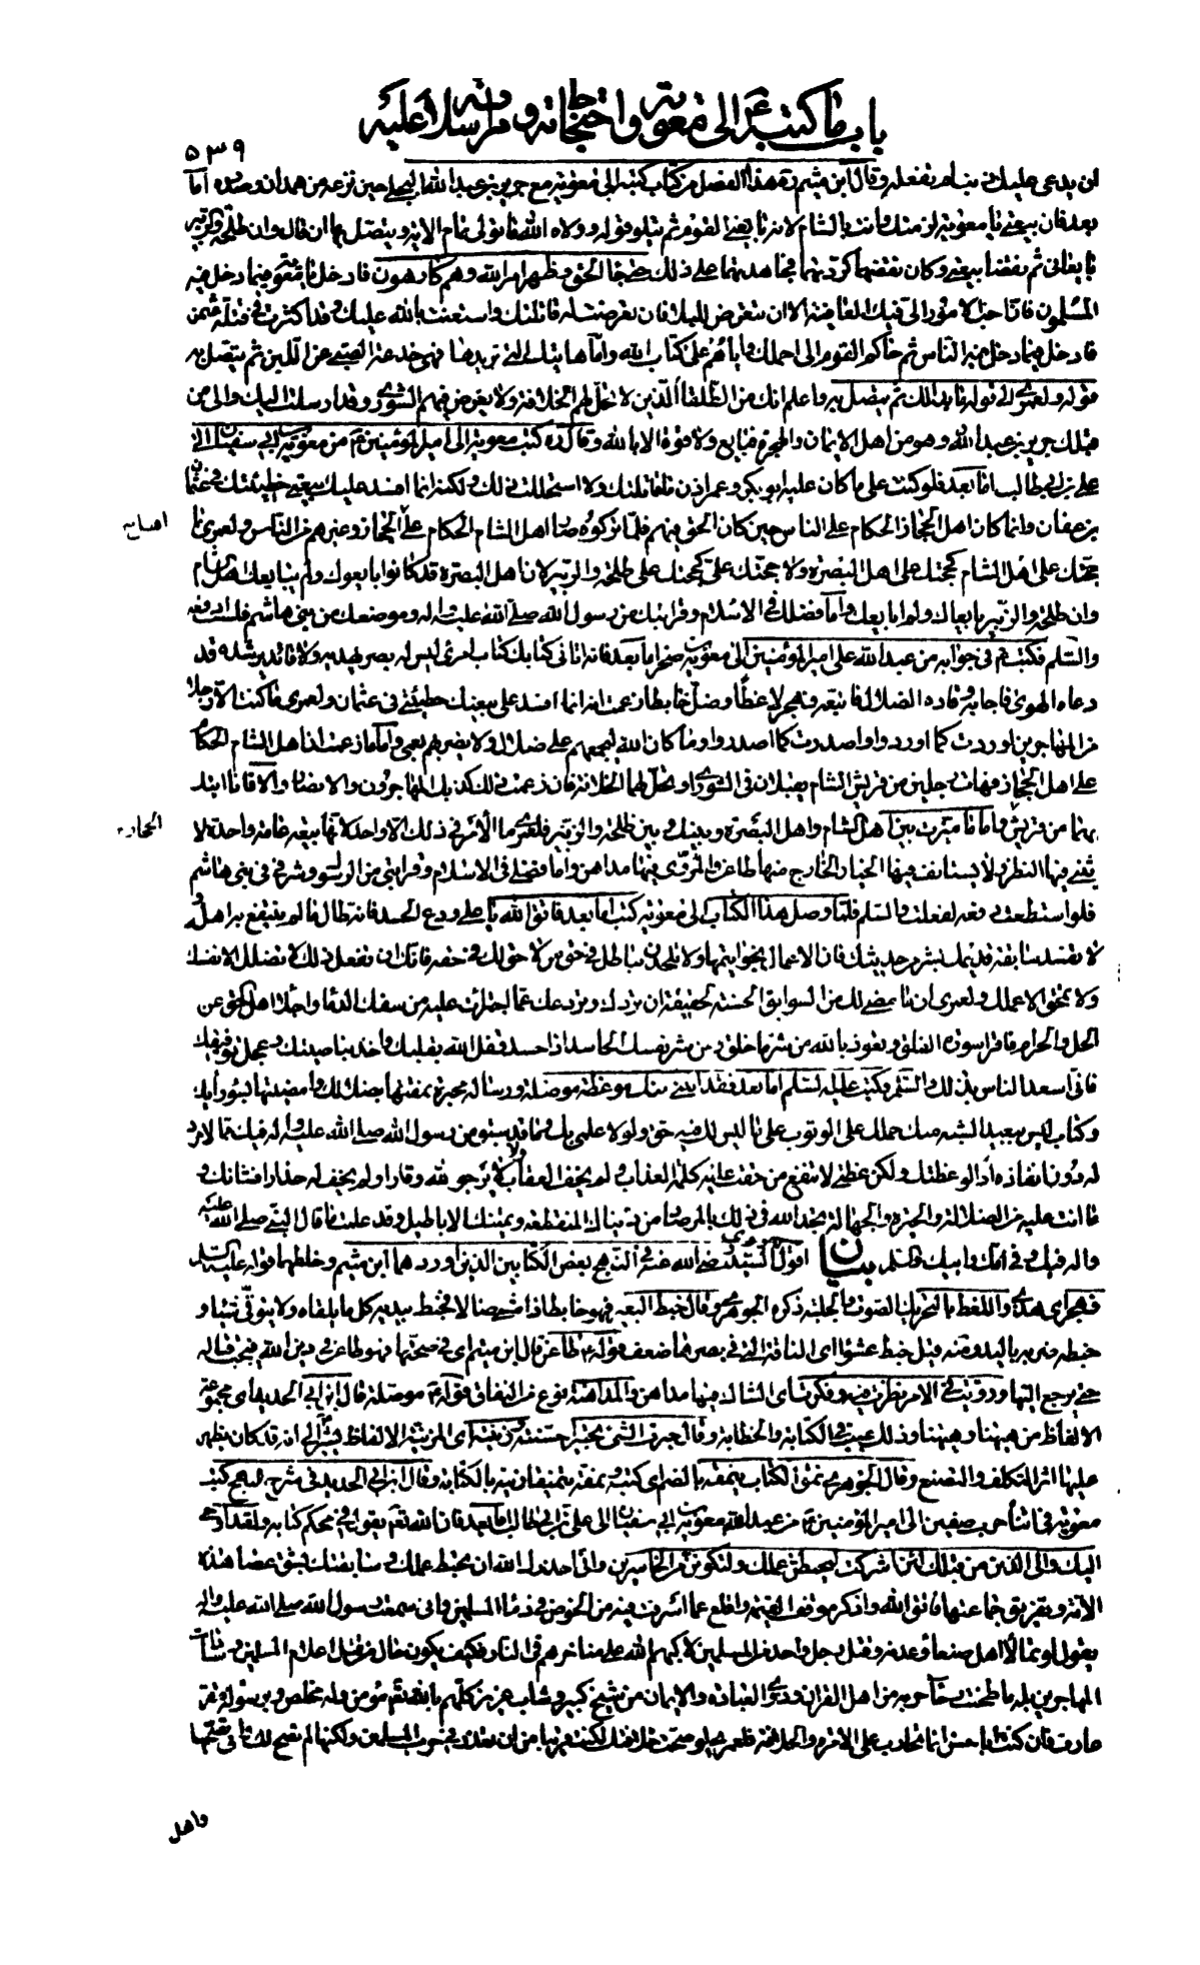 باب ما كتب ع الى معوية واحتجاجاته ومراسلاته عليه
٥٣٩
ان يدعى عليك به بناه تفعله وقال ابن ميثم ره هذا الفصل من كتاب كتبه الى معوية مع جرير بن عبد الله البجلي حين نزعه من همدان وصدره اما
بعد فان بيعتي يا معوية لزمتك وانت بالشام لانه بايعني القوم ثم يتلو قوله وولاه الله ما تولى تمام الاية ويتصل بها ان قال وان طلحة والزبير
بايعاني ثم نقضا بيعتي وكان نقضهما كردتهما فجاهدتهما على ذلك حتى جاء الحق وظهر امر الله وهم كارهون فادخل يا معوية فيما دخل فيه
المسلمون فان احب الامور الى فيك العافية الا ان تتعرض للبلاء فان تعرضت له قاتلتك واستعنت بالله عليك وقد اكثرت في قتلة عثمن
فادخل فيما دخل فيه الناس ثم حاكم القوم الى احملك واياهم على كتاب الله واما هاتيك التي تريدها فهي خدعة الصبي عن اللبن ثم يتصل به
قوله ولعمري الى قوله ما بدا لك ثم يتصل به واعلم انك من الطلقاء الذين لا تحل لهم الخلافة ولا يعرض فيهم الشورى وقد ارسلت اليك والى من
قبلك جرير بن عبد الله وهو من اهل الايمان والهجرة فبايع ولا قوة الا بالله وقال ره كتب معوية الى امير المؤمنين ع من معوية بن ابي سفيان الى
علي بن ابي طالب اما بعد فلو كنت على ما كان عليه ابو بكر وعمر اذن ما قاتلتك ولا استحللت ذلك ولكنه انما افسد عليك بيعتي خطيئتك في عثمان
بن عفان وانما كان اهل الحجاز الحكام على الناس حين كان الحق فيهم فلما تركوه صار اهل الشام الحكام على اهل الحجاز وغيرهم من الناس ولعمري ما
حجتك على اهل الشام كحجتك على اهل البصرة ولا حجتك علي كحجتك على طلحة والزبير لان اهل البصرة قد كانوا بايعوك ولم يبايعك اهل الشام
وان طلحة والزبير بايعاك ولم ابايعك واما فضلك في الاسلام وقرابتك من رسول الله صلى الله عليه واله وموضعك من بني هاشم فلست ادفعه
والسلم فكتب ع في جوابه من عبد الله علي امير المؤمنين الى معوية بن صخر اما بعد فانه اتاني كتابك كتاب امرئ ليس له بصر يهديه ولا قائد يرشده قد
دعاه الهوى فاجابه وقاده الضلال فاتبعه فهجر لاغطا وضل خابطا زعمت انه انما افسد على بيعتك خطيئتي في عثمان ولعمري ما كنت الا رجلا
من المهاجرين اوردت كما اوردوا واصدرت كما اصدروا وما كان الله ليجمعهم على ضلال ولا يضربهم بعمى واما ما زعمت ان اهل الشام الحكام
على اهل الحجاز فهات رجلين من قريش الشام يقبلان في الشورى او تحل لهما الخلافة فان زعمت ذلك كذبك المهاجرون والانصار والا فانا اتيك
بهما من قريش واما ما ميزت بين اهل الشام واهل البصرة وبينك وبين طلحة والزبير فلعمري ما الامر في ذلك الا واحد لانها بيعة عامة واحدة لا
يثنى فيها النظر ولا يستانف فيها الخيار الخارج منها طاعن والمروي فيها مداهن واما فضلي في الاسلام وقرابتي من الرسول وشرفي في بني هاشم
فلو استطعت دفعه لفعلت والسلم فلما وصل هذا الكتاب الى معوية كتب اما بعد فاتق الله يا علي ودع الحسد فانه طال ما لم ينتفع به اهله و
لا تفسد سابقة قديمك بشر من حديثك فان الاعمال بخواتيمها ولا تلحدن بباطل في حق من لا حق لك في حقه فانك ان تفعل ذلك لا تضلل الا نفسك
ولا تمحق الا عملك ولعمري ان ما مضى لك من السوابق الحسنة لحقيقة ان تردك وتردعك عما اجترات عليه من سفك الدماء واجلاء اهل الحق عن
الحل والحرام فاقرا سورة الفلق وتعوذ بالله من شر ما خلق ومن شر نفسك الحاسد اذا حسد قفل الله بقلبك واخذ بناصيتك وعجل توفيقك
فاني اسعد الناس بذلك والسلم وكتب عليه السلم اما بعد فقد اتتني منك موعظة موصلة ورسالة محبرة نمقتها بضلالك وامضيتها بسوء رايك
وكتاب ليس ببعيد الشبه منك حملك على الوثوب على ما ليس لك فيه حق ولولا علمي بك وما قد سبق من رسول الله صلى الله عليه واله فيك مما لا مرد
له دون انفاذه اذا لوعظتك ولكن عظتي لا تنفع من حقت عليه كلمة العذاب ولم يخف العقاب ولا يرجو لله وقارا ولم يخف له حذارا فشانك و
ما انت عليه من الضلالة والحيرة والجهالة تجد الله في ذلك بالمرصاد من دنياك المنقطعة وتمنيك الاباطيل وقد علمت ما قال النبي صلى الله عليه
واله فيك وفي امك وابيك والسلم بيان اقول روى السيد رضي الله عنه في النهج بعض الكتابين الذين اوردهما ابن ميثم وخلطهما قوله عليه السلم
فهجر اي هذى واللغط بالتحريك الصوت والجلبة ذكره الجوهري وقال خبط البعير فهو خابط اذا شخصا لا تخبط بيديه كل ما يلقاه ولا يتوقى شيئا و
خبطه ضربه باليد ومنه قيل خبط عشواء اى الناقة التي في بصرها ضعف قوله ع طاعن قال ابن ميثم اي في صحتها فهو طاعن في دين الله فيجب قتاله
حتى يرجع اليها ورويت في الامر نظرت فيه وفكرت اي الشاك فيها مداهن والمداهنة نوع من النفاق قوله ع موصلة قال ابن ابي الحديد اي مجموعة
الالفاظ من هيهنا وهيهنا وذلك عيب في الكتابة والخطابة وقال حبرت الشئ تحبيرا حسنته وزينته اى المزينة الالفاظ يشير الى انه قد كان يظهر
عليها اثر التكلف والتصنع وقال الجوهري نمق الكتاب ينمقه بالضم اى كتبه ونمقه تنميقا زينه بالكتابة وقال ابن ابي الحديد في شرح النهج كتب
معوية في اثناء حرب صفين الى امير المؤمنين ع من عبد الله معوية بن ابي سفيان الى علي بن ابي طالب اما بعد فان الله تعم يقول في محكم كتابه ولقد اوحي
اليك والى الذين من قبلك لئن اشركت ليحبطن عملك ولتكونن من الخاسرين واني احذرك الله ان تحبط عملك وسابقتك بشق عصا هذه
الامة وتفريق جماعتها فاتق الله واذكر موقف القيمة واقلع عما اسرفت فيه من الخوض في دماء المسلمين واني سمعت رسول الله صلى الله عليه واله
يقول لو تمالا اهل صنعاء وعدن على قتل رجل واحد من المسلمين لاكبهم الله على مناخرهم في النار فكيف يكون حال من قتل اعلام المسلمين وسادات
المهاجرين بله ما طحنت رحا حربه من اهل القران وذوي العبادة والايمان من شيخ كبير وشاب غرير كلهم بالله تعم مؤمن وله مخلص وبرسوله مقر
عارف فان كنت ابا حسن انما تحارب على الامرة والخلافة فلعمري لو صحت خلافتك لكنت قريبا من ان تعذر في حرب المسلمين ولكنها لم تصح لك وانى بصحتها
واهل